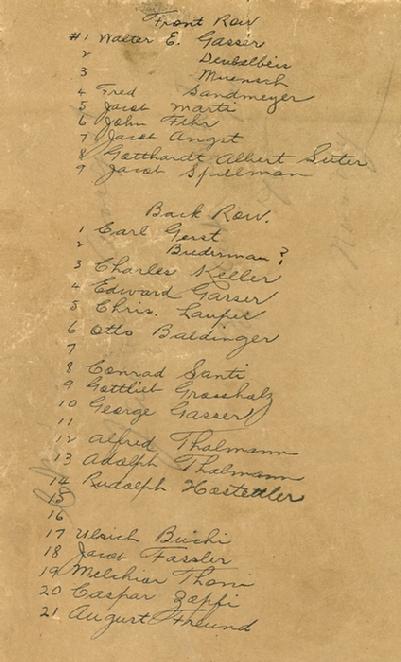 Front Row
#1 Walter E. Gasser
2 Deubelbeis
3 Muensch
4 Fred Sandmeyer
5 Jacob Marti
6 John Fehr
7 Jacob Angst
8 Gotthardt Albert Suter
9 Jacob Spillman
Back Row.
1 Carl Gerst
2 Buderman?
3 Charles Keller
4 Edward Garser
5 Chris. Lauper
6 Otto Baldinger
7
8 Conrad Santi
9 Gottlieb Grossholz
10 George Gasser
11
12 Alfred Thalmann
13 Adolph Thalmann
14 Rudolph Hostettler
15
16
17 Ulrich Buchi
18 Jacob Fassler
19 Melchior Thoni
20 Caspar Zopfi
21 August Freund